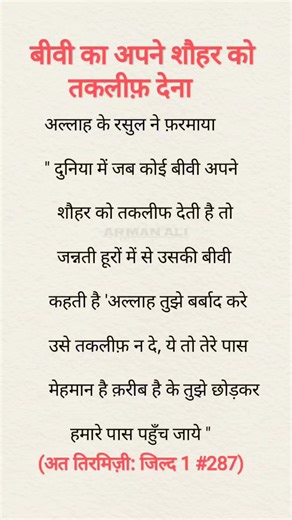 बीवी का अपने शौहर को
तकलीफ़ देना
अल्लाह के रसुल ने फ़रमाया
" दुनिया में जब कोई बीवी अपने
शौहर को तकलीफ देती है तो
ARMAN ALI
जन्नती हूरों में से उसकी बीवी
कहती है 'अल्लाह तुझे बर्बाद करे
उसे तकलीफ़ न दे, ये तो तेरे पास
मेहमान है क़रीब है के तुझे छोड़कर
हमारे पास पहुँच जाये "
(अत तिरमिज़ी: जिल्द 1 #287)